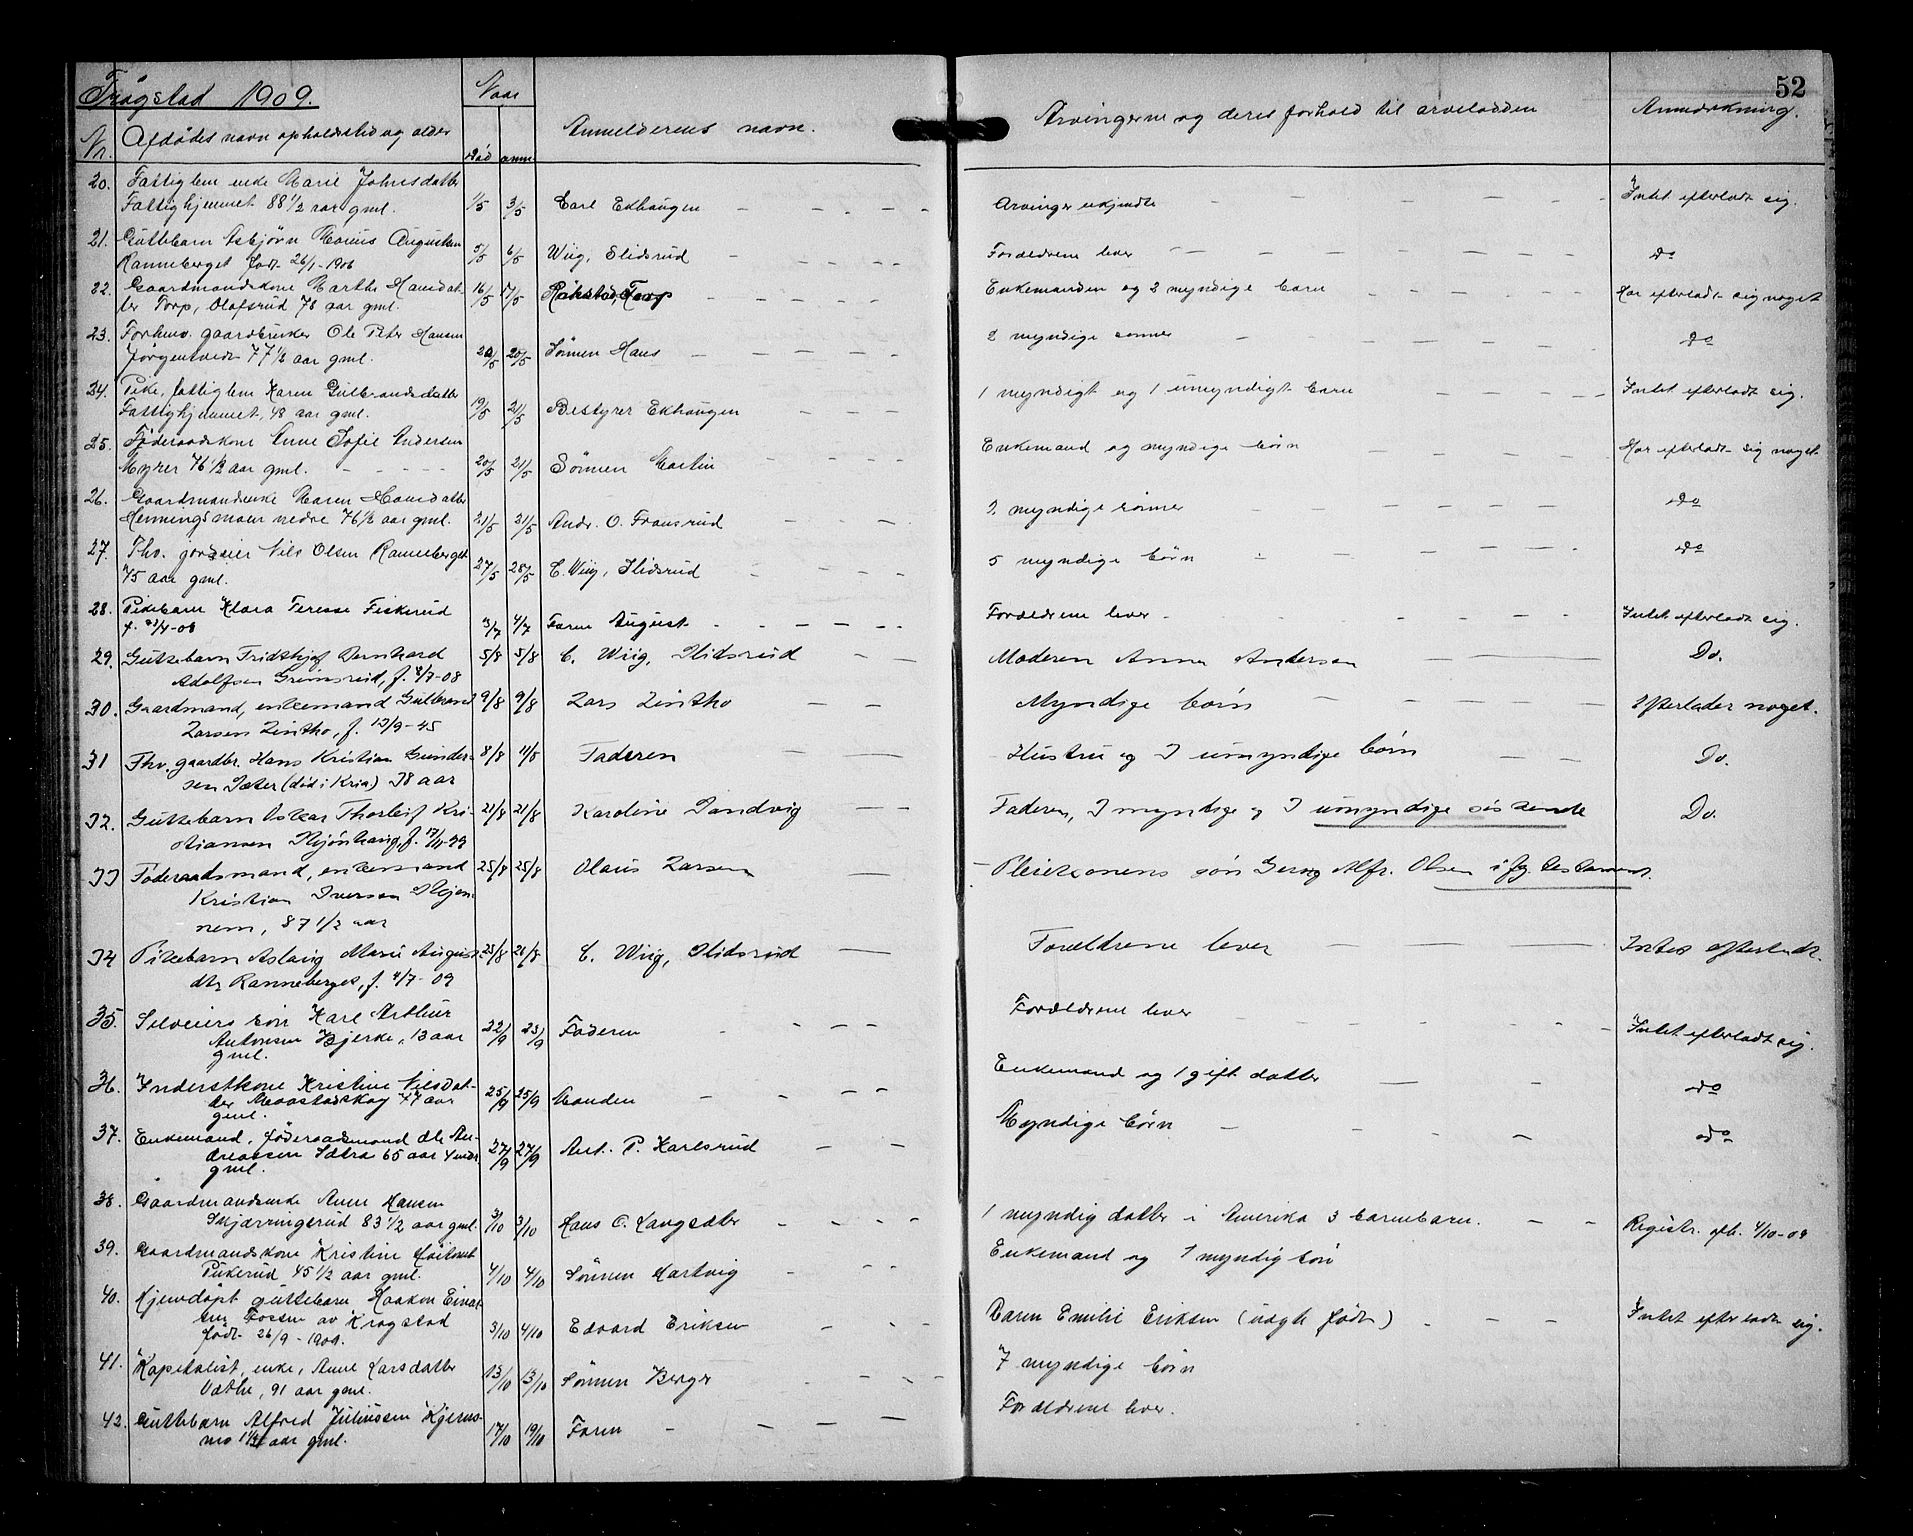 52
Trøgstad 1909.
Naar
Nr. Afdødes navn opholdssted og alder død anm. Anmelderens navn. Arvingerne og deres forhold til arveladeren Anmerkning.
20. Fattiglem enke Marie Johnsdatter
Fattighjemmet 88 1/2 aar gml. 1/5 3/5 Carl Ekhaugen Arvinger ukjendte Intet efterladt sig.
21. Guttebarn Asbjørn Marius Augustsen
Ranneberget født 26/1-1906 5/5 6/5 Wiig, Slidsrud Forældrene lever do
22. Gaardmandskone Marthe Hansdat-
ter Torp, Olafsrud 78 aar gml. 16/5 17/5 Rakstad, Torp Enkemanden og 2 myndige barn Har efterladt sig noget
23. Forhenv. gaardbruker Ole Peter Hansen
Jørgentvedt 77 1/2 aar gml. 20/5 20/5 Sønnen Hans 2 myndige sønner do
24. Pike, fattiglem Karen Gulbrandsdatter
Fattighjemmet, 48 aar gml. 19/5 21/5 Bestyrer Ekhaugen 1 myndigt og 1 umyndigt barn Intet efterladt sig.
25. Føderaadskone Anne Sofie Andersen
Myrer 76 1/2 aar gml. 20/5 21/5 Sønnen Martin Enkemand og myndige børn Har efterladt sig noget
26. Gaardmandsenke Maren Hansdatter
Henningsmoen nedre 76 1/2 aar gml. 21/5 21/5 Andr. O. Fransrud 2 myndige sønner do
27. Fhv. jordeier Nils Olsen Ranneberget
75 aar gml. 27/5 28/5 C. Wiig, Slidsrud 5 myndige børn do
28. Pikebarn Klara Terese Fiskerud
f. 23/4-08 3/7 4/7 Faren August Forældrene lever Intet efterladt sig.
29. Guttebarn Fridthjof Bernhard
Adolfsen Grimsrud, f. 8/7-08 5/8 5/8 C. Wiig, Slidsrud Moderen Anna Andersen Do.
30. Gaardmand, enkemand Gulbrand
Larsen Lintho, f. 13/9-45 9/8 9/8 Lars Lintho Myndige børn Efterlader noget.
31 Fhv. gaardbr. Hans Kristian Gunder-
sen Sæter (død i Kria) 38 aar 8/8 11/8 Faderen Hustru og 3 umyndige børn Do.
32. Guttebarn Oskar Thorleif Kri-
stiansen Skjønhaug, f. 17/11-99 21/8 21/8 Karoline Sandvig Faderen, 3 myndige og 3 umyndige søskende Do.
33 Føderaadsmand, enkemand
Kristian Iversen Skjøn-
nem, 87 1/2 aar 25/8 25/8 Olaus Larsen Pleiekonens søn Georg Alfr. Olsen ifg. testament.
34 Pikebarn Aslaug Marie August
dtr Ranneberget, f. 4/7-09 25/8 26/8 C. Wiig, Slidsrud Forældrene lever Intet efterladt.
35. Selveiers søn Karl Arthur
Antonsen Bjerke, 13 aar
gml. 22/9 23/9 Faderen Forældrene lever Intet efterladt sig.
36. Inderstkone Kristine Nilsdat-
ter Moastadskog 47 aar
gml. 25/9 25/9 Manden Enkemand og 1 gift datter do
37. Enkemand, føderaadsmand Ole An-
dreassen Sætra 65 aar 4 mdr
gml. 27/9 27/9 Ant. P. Karlsrud Myndige børn do
38. Gaardmandsenke Anne Hansen
Skjærringsrud 83 1/2 aar gml. 3/10 3/10 Hans O. Langsæter 1 myndig datter i Amerika 3 barnebarn. Registr. afh. 4/10-09
39. Gaardmandskone Kristine
Pukerud 45 1/2 aar gml. 4/10 4/10 Sønnen Hartvig Enkemand og 1 myndig søn
40. Hjemdøpt guttebarn Haakon Einar
Fossen av Krogstad
født 26/9-1909. 3/10 4/10 Edvard Eriksen Maren Emilie Eriksen (uægte født) Intet efterladt sig.
41. Kapitalist, enke, Anne Larsdatter
Væthe, 91 aar gml. 13/10 13/10 Sønnen Berger 7 myndige børn
42. Guttebarn Alfred Juliussen Kjerns-
mo 1 1/2 aar gml. 17/10 19/10 Faren Forældrene lever.